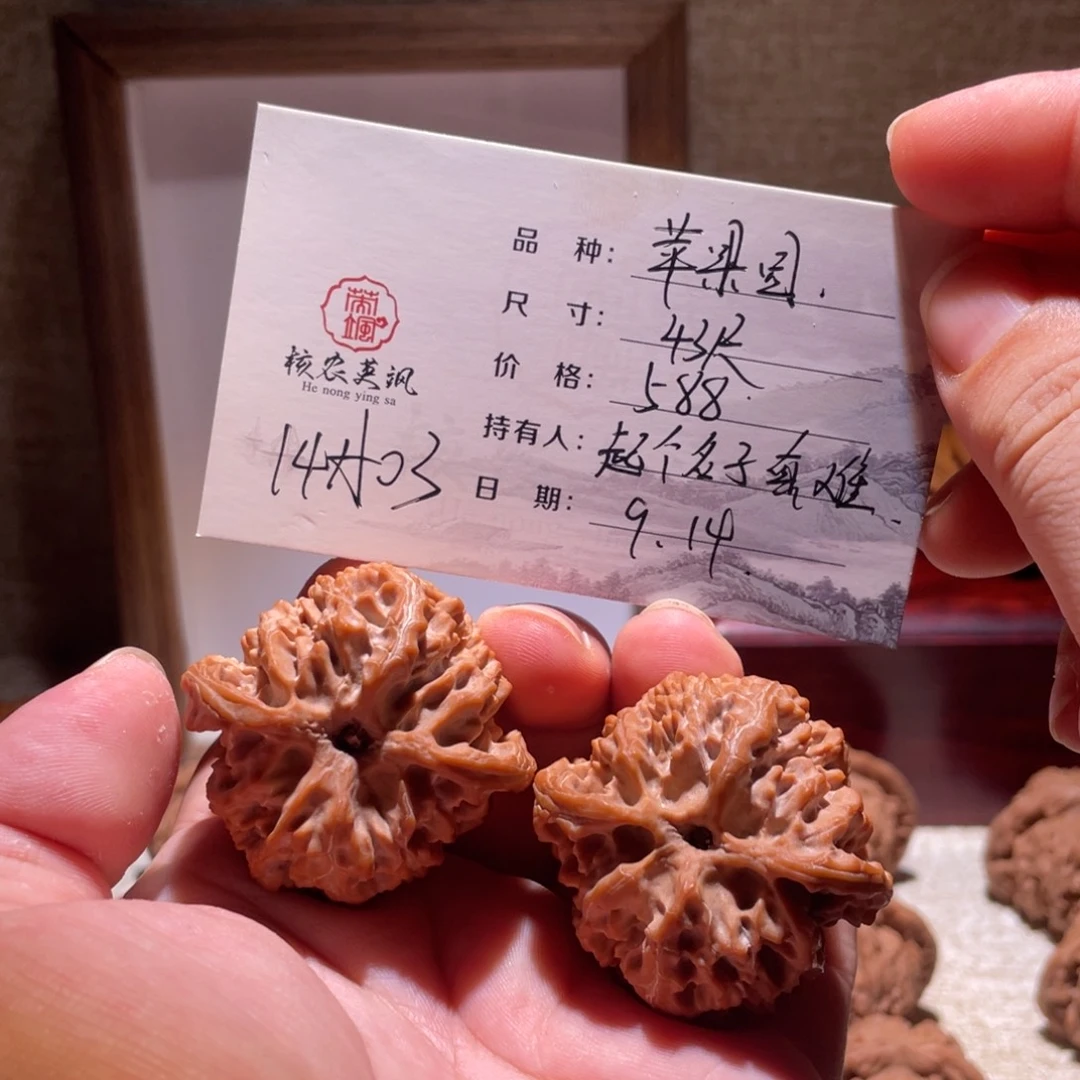 品 种: 苹果园.
尺 寸: 43尺
价 格: 588.
持有人: 起个名子真难.
日 期: 9.14.
核农英飒
He nong ying sa